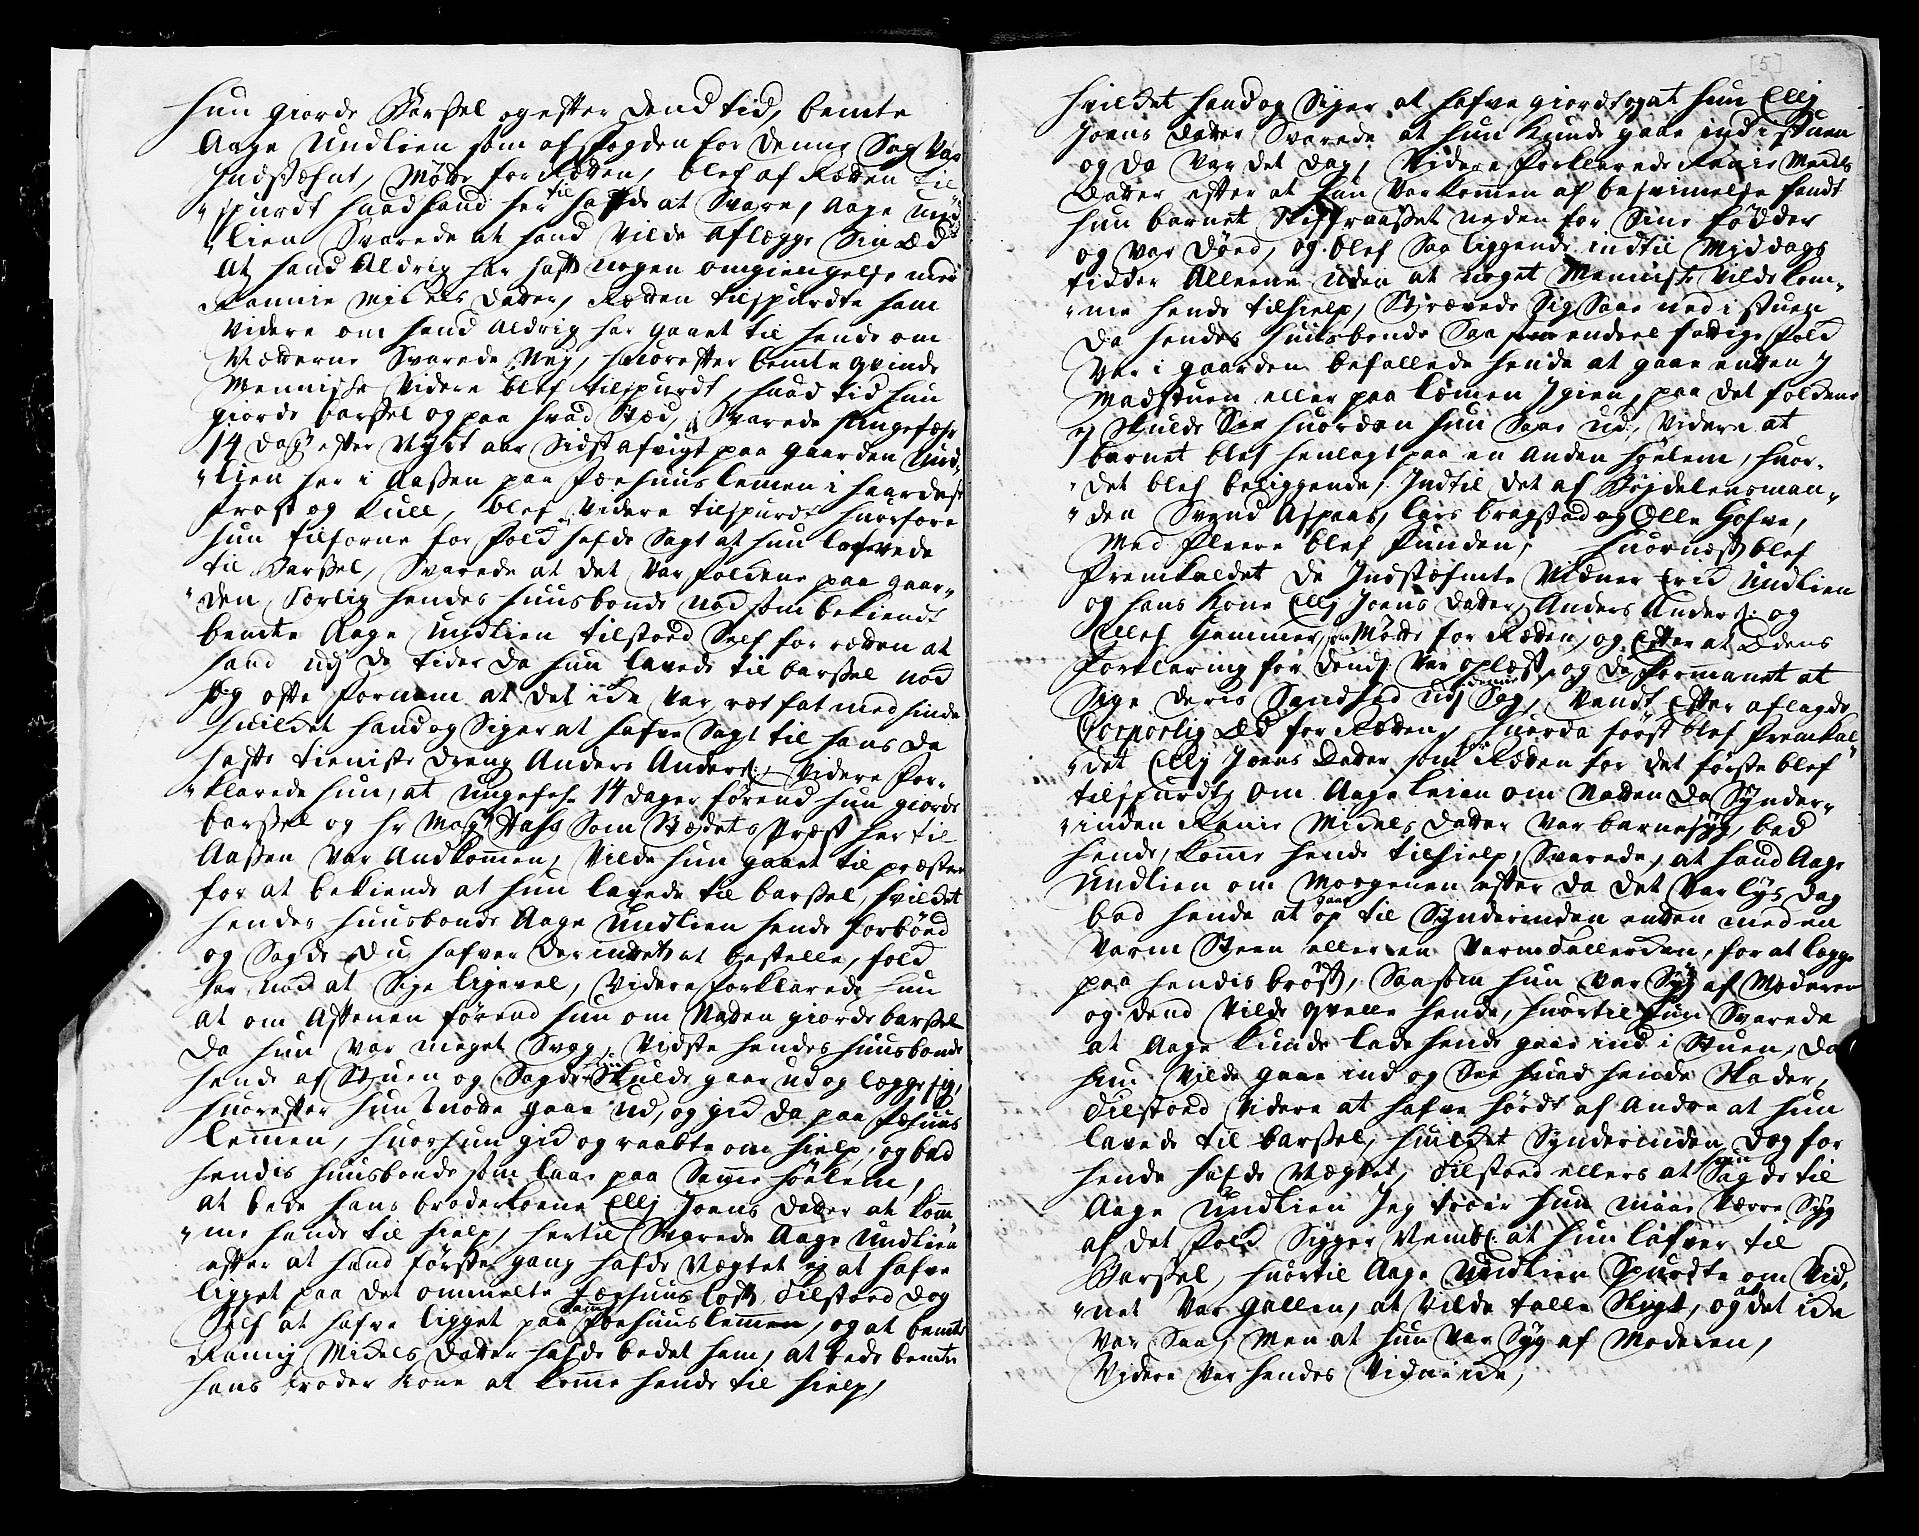 hun giorde Barsel og efter dend tid, bemte
Aage Undlien som af fogden for denne Sag var
Indstæfnt, Mötte for Retten, blef af Retten til
spurdt hvad hand her til hafde at Svare, Aage Und
lien Svarede at hand vilde aflægge Sin Eed
At hand Aldrig har hafft nogen omgiengelse med
Rannie Michels datter, Retten tilspurdte ham
videre om hand aldrig har gaaet til hende om
Nætterne Svarede Ney, hvorefter bemte qvinde
Menniske videre blef tilspurdt, hvad tid hun
giorde barsel og paa hvad Stæd, Svarede Ungefehr
14 dage efter Nyt aar Sidst afvigt paa gaarden Und
lien her i Aasen paa Fæehuus lemen i haardeste
frost og kull, blef videre tilspurdt hvorfore
hun tilforne for folk hafde Sagt at hun lafvede
til Barsel, Svarede at det var folkene paa gaar
den Særlig hendes huusbonde nok som bekiendt
bemte Aage Undlien tilstoed Self for retten at
hand udj de tider da hun lavede til barsel nok
ofte fornam at det icke var ret fat med hinde
hvilket hand og Siger at hafve Sagt til hans da
hafte tieniste dreng Anders Anders: Videre for
klarede hun, at ungefehr 14 dager förend hun giorde
barsel og hr Mag: som Stædets Præst her til
Aasen var Ankommen, vilde hun gaaet til præsten
for at bekiende at hun lavede til barsel, hvilket
hendes huusbonde Aage Undlien hende forböed
og Sagde du hafver der intet at bestelle, folk
har nok at Sige ligevel, Videre forklarede hun
at om Aftenen förend hun om Natten giorde barsel
da hun var meget Svag, viste hendes huusbonde
hende af Stuen og Sagde Skulde gaae ud og lægge sig,
hvorefter hun motte gaae ud, og gik da paa Fæhuus
lemen, hvor hun gik og raabte om hielp, og bad
hendis huusbonde som laae paa Samme höelem,
at bede hans broderkone Ellj Joens datter at kom
me hende til hielp, hertil Svarede Aage Undlien
efter at hand förste gang hafde Negtet ey at hafve
ligget paa det ommelte Fæehuus loft Tilstoed dog
Self at hafve ligget paa Samme Fæehuus lemmen, og at bemte
Ranig Michels datter hafde bedet ham, at bede bemte
hans broder kone at komme hende til hielp,
[5]
hvilket hand og Siger at hafve giordt og at hun Ellj
Joens datter Svarede at hun kunde gaae ind i Stuen
og da var det dag, Videre forklarede Ranie Michels
datter efter at hun var kommen af besvimelse fandt
hun barnet Stiffraasset neden for Sine födder
og var döed, og blef Saa liggende indtil Middags
tidder Alleene uden at noget Menniske vilde kom
me hende til hielp, Strævede Sig Saae ned i Stuen
da hendes huusbonde Saa endeel fattige folk
var i gaarden befallede hende at gaae enten i
Madstuen eller paa læmen Igien, paa det folkene
ej Skulde See hvordan hun Saae ud, Videre at
barnet blef henlagt paa en anden höelem, hvor
det blef beliggende, Indtil det af Bøjdelensman
den Svend Aspaas, Lars bragstad og Olle Hofve,
med fleere blef funden, hvornest blef
fremkaldet de Indstæfnte Vidner Erick Undlien
og hans kone Ellj Joens datter, Anders Anders: og
Ellef Hemmer, som Mötte for Retten, og efter at Edens
forklaring for dend var oplæst, og de formanet at
Sige deris Sandhed udj denne Sag, Vandt efter aflagde
Corporlig Eed for Retten, hvorda först blef fremkal
det Ellj Joens datter som for Retten for det förste blef
tilspurdt om Aage leien om Natten da Synder
inden Ranie Michels datter var barnesyg, bad
hende komme hende til hielp, Svarede, at hand Aage
Undlien om Morgenen efter da det var lys dag
bad hende at gaae op til Synderinden enten med en
varm Steen eller en varm Tallerken, for at legge
paa hendis bröst, Saasom hun var Syg af Moderen
og dend vilde qvelle hende, hvortil hun Svarede
at Aage kunde lade hende gaae ind i Stuen, da
hun vilde gaae ind og See hvad hende Skader,
Tilstoed videre at hafve hördt af Andre at hun
lavede til barsel, hvilket Synderinden dog for
hende hafde Negtet, Tilstoed ellers at hun Sagde til
Aage Undlien Jeg troer hun maae være Syg
af det folk Sigger Nembl: at hun lafver til
Barsel, hvortil Aage Undlien Spurdte om Vid
net var gallen, at vilde talle Sligt, og at det icke
var Saa, men at hun var Syg af Moderen,
Videre var hendes Vidne icke,